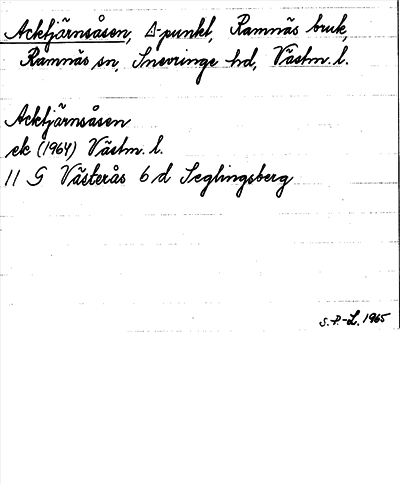 Acktjärnsåsen, △-punkt, Ramnäs bruk,
Ramnäs sn, Snevringe hd, Västm. l.
Acktjärnsåsen
ek (1964) Västm. l.
11 G Västerås 6 d Seglingsberg
S.-P.-L. 1965